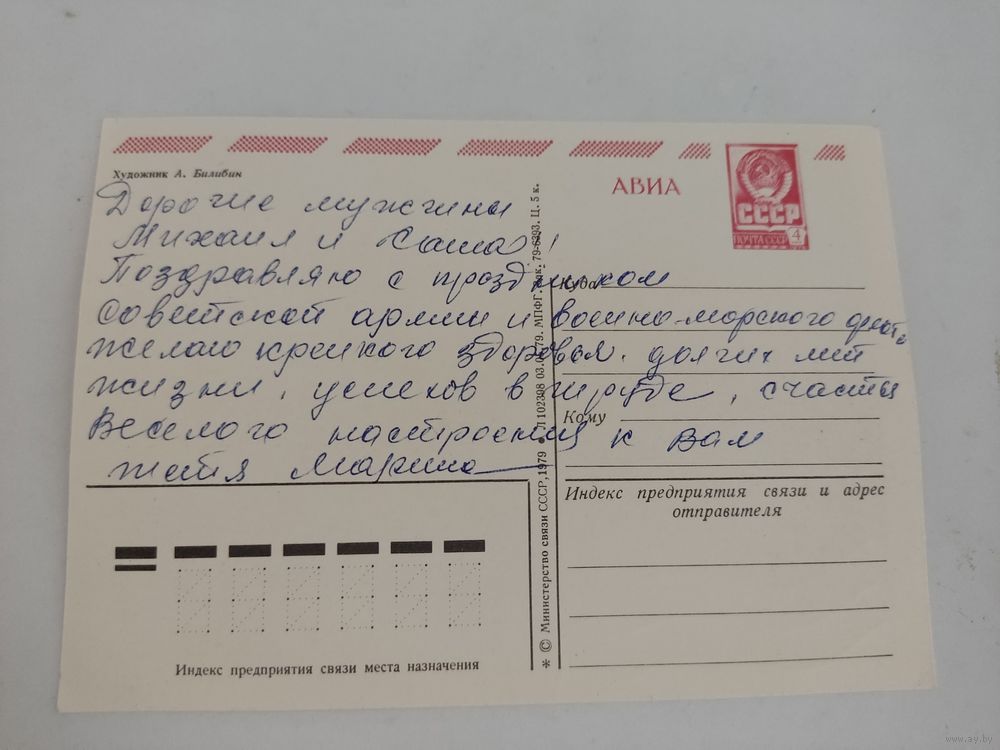 Художник А. Билибин
АВИА
СССР
ПОЧТА СССР 4
Дорогие мужчины
Михаил и Саша!
Поздравляю с праздником
Советской армии и военно-морского флота.
желаю крепкого здоровья. долгих лет
жизни, успехов в труде, счастья
Веселого настроения к вам
тётя Марина
Куда
Кому
Индекс предприятия связи и адрес
отправителя
Индекс предприятия связи места назначения
* © Министерство связи СССР, 1979 Л 102398 03.01.79. МПФГ. Зак. 79-6393. Ц. 5 к.
www.ay.by